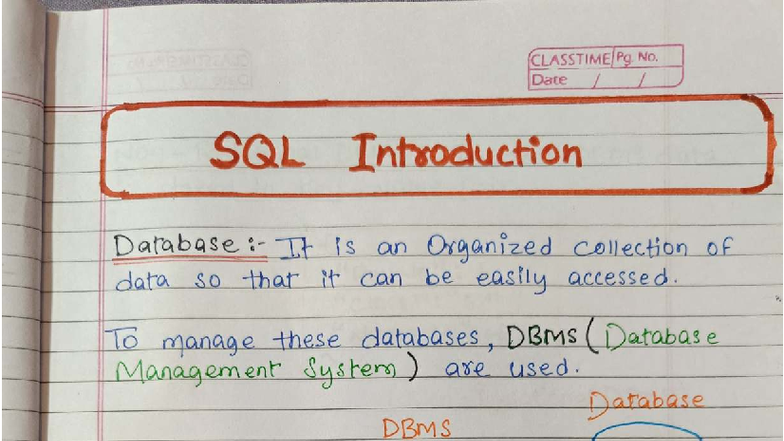 CLASSTIME Pg. No.
Date / /
SQL Introduction
Database :- It is an Organized collection of
data so that it can be easily accessed.
To manage these databases, DBMS (Database
Management System) are used.
Database
DBMS